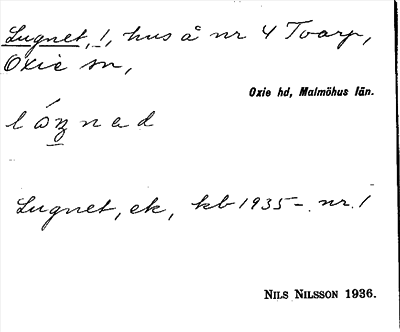 Lugnet, 1, hus å nr 4 Toarp,
Oxie sn,
Oxie hd, Malmöhus län.
Lugnet, ek, kb 1935–. nr. 1
NILS NILSSON 1936.